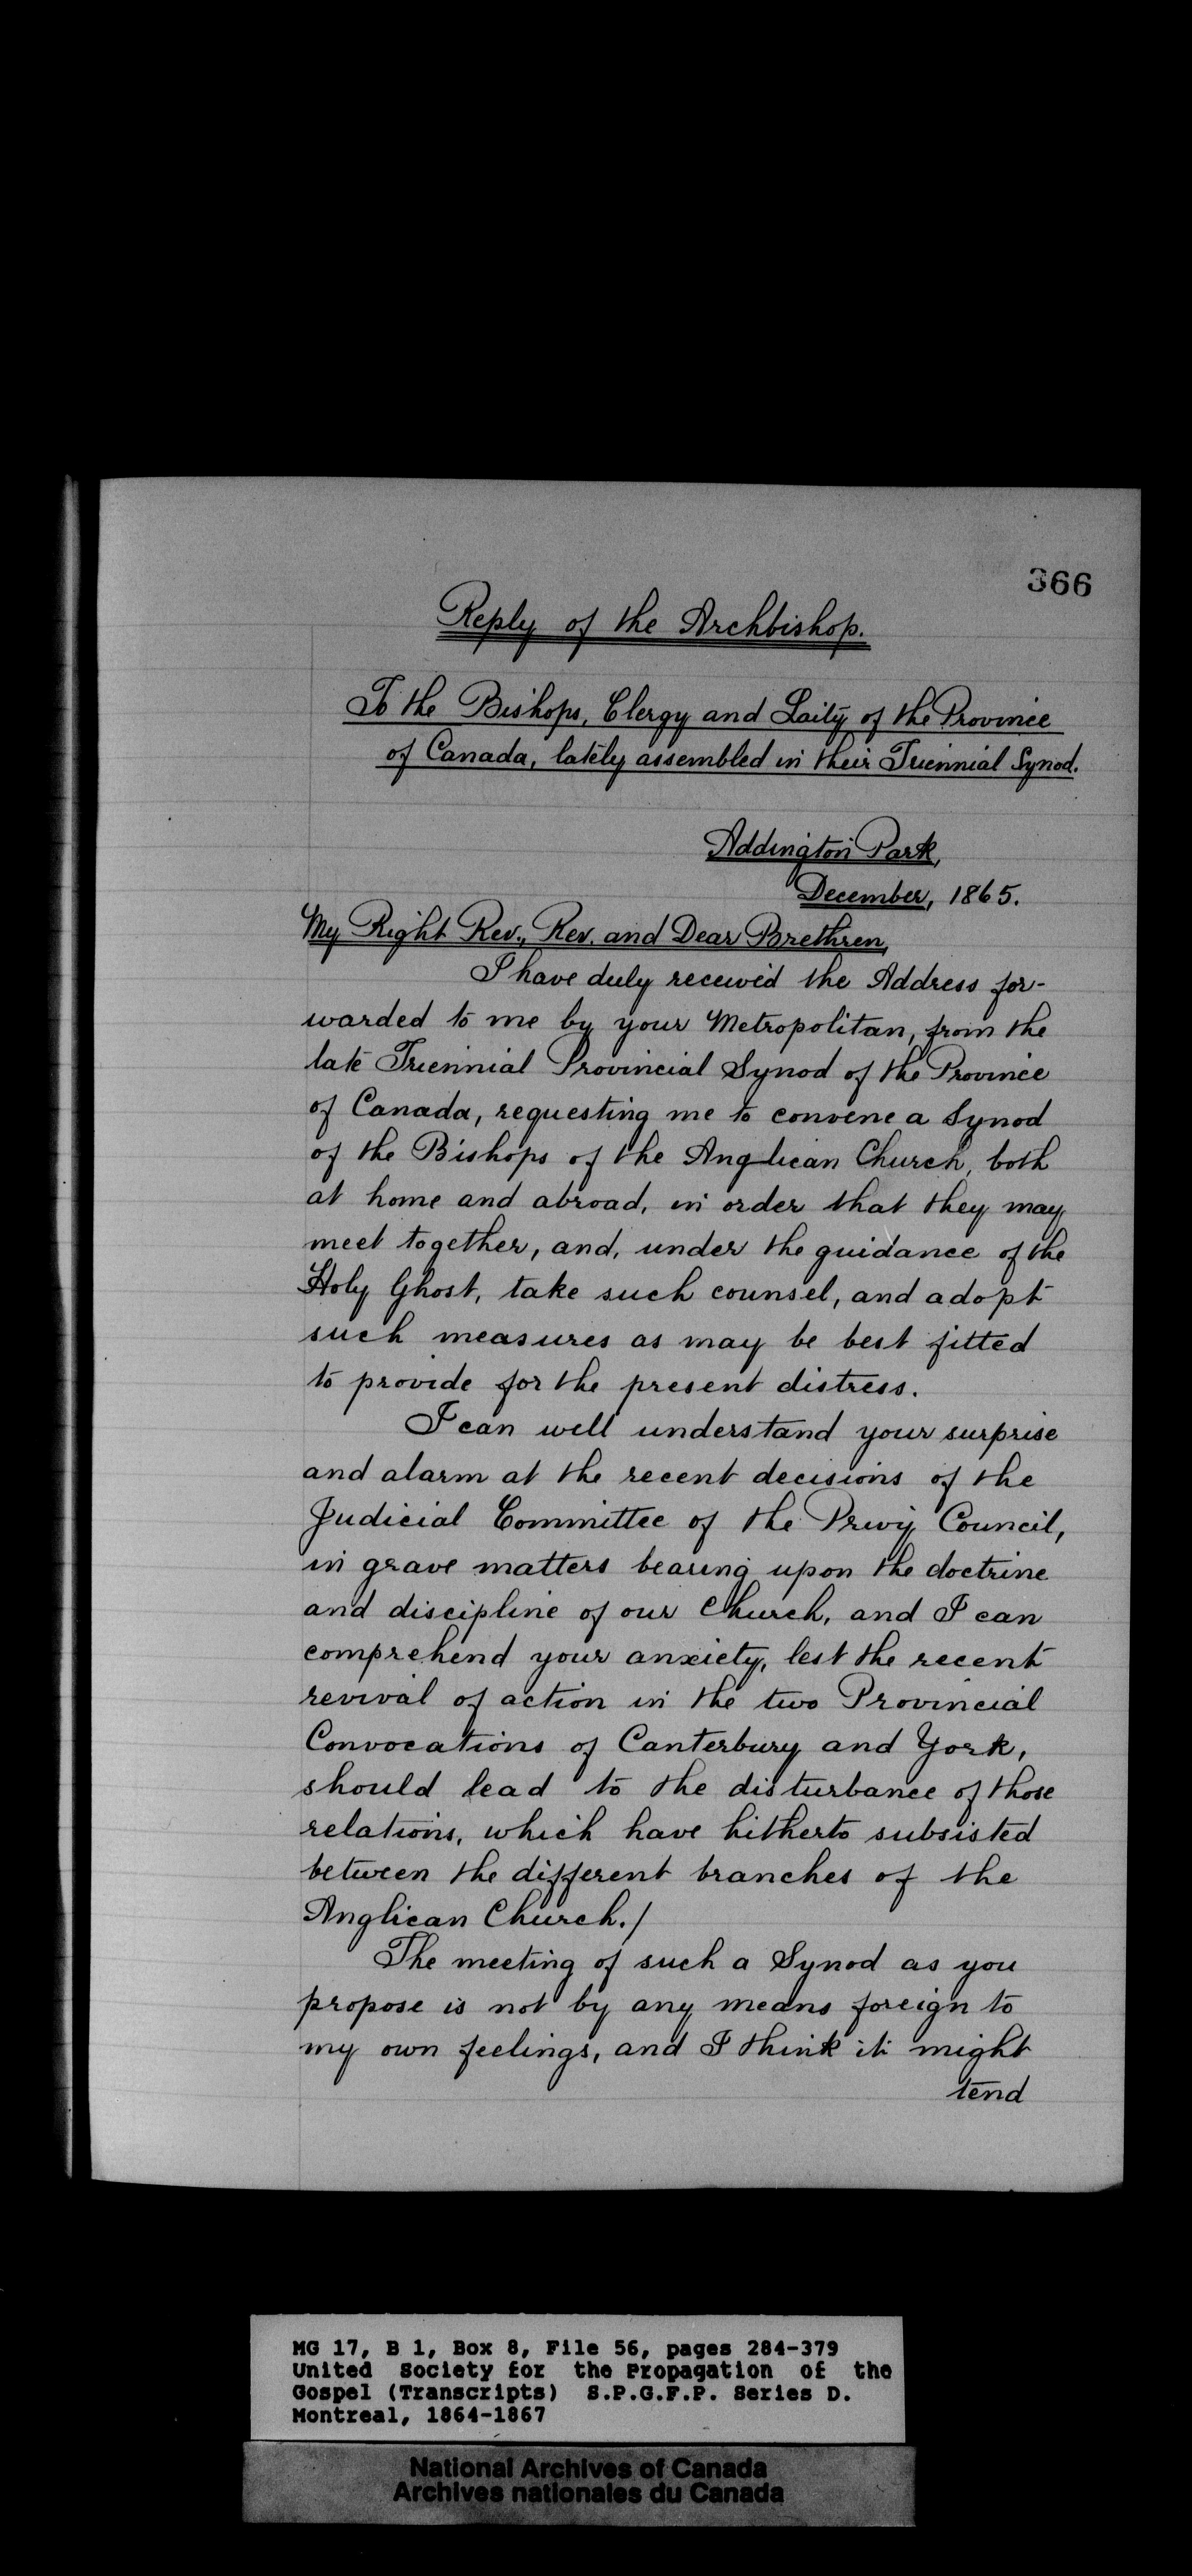 366
Reply of the Archbishop.
To the Bishops, Clergy and Laity of the Province
of Canada, lately assembled in their Triennial Synod.
Addington Park,
December, 1865.
My Right Rev., Rev. and Dear Brethren,
I have duly received the Address for-
warded to me by your Metropolitan, from the
late Triennial Provincial Synod of the Province
of Canada, requesting me to convene a Synod
of the Bishops of the Anglican Church, both
at home and abroad, in order that they may
meet together, and, under the guidance of the
Holy Ghost, take such counsel, and adopt
such measures as may be best fitted
to provide for the present distress.
I can well understand your surprise
and alarm at the recent decisions of the
Judicial Committee of the Privy Council,
in grave matters bearing upon the doctrine
and discipline of our Church, and I can
comprehend your anxiety, lest the recent
revival of action in the two Provincial
Convocations of Canterbury and York,
should lead to the disturbance of those
relations, which have hitherto subsisted
between the different branches of the
Anglican Church./
The meeting of such a Synod as you
propose is not by any means foreign to
my own feelings, and I think it might
tend
MG 17, B 1, Box 8, File 56, pages 284-379
United Society for the Propagation of the
Gospel (Transcripts) S.P.G.F.P. Series D.
Montreal, 1864-1867
National Archives of Canada
Archives nationales du Canada